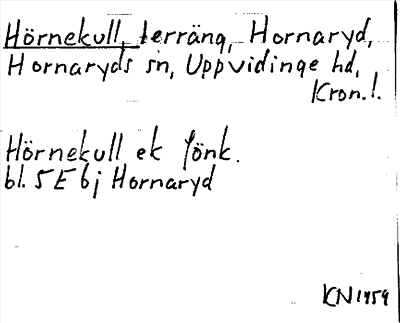 Hörnekull, terräng, Hornaryd,
Hornaryds sn, Uppvidinge hd,
Kron. l.
Hörnekull ek Jönk.
bl. 5E bj Hornaryd
KN 1959